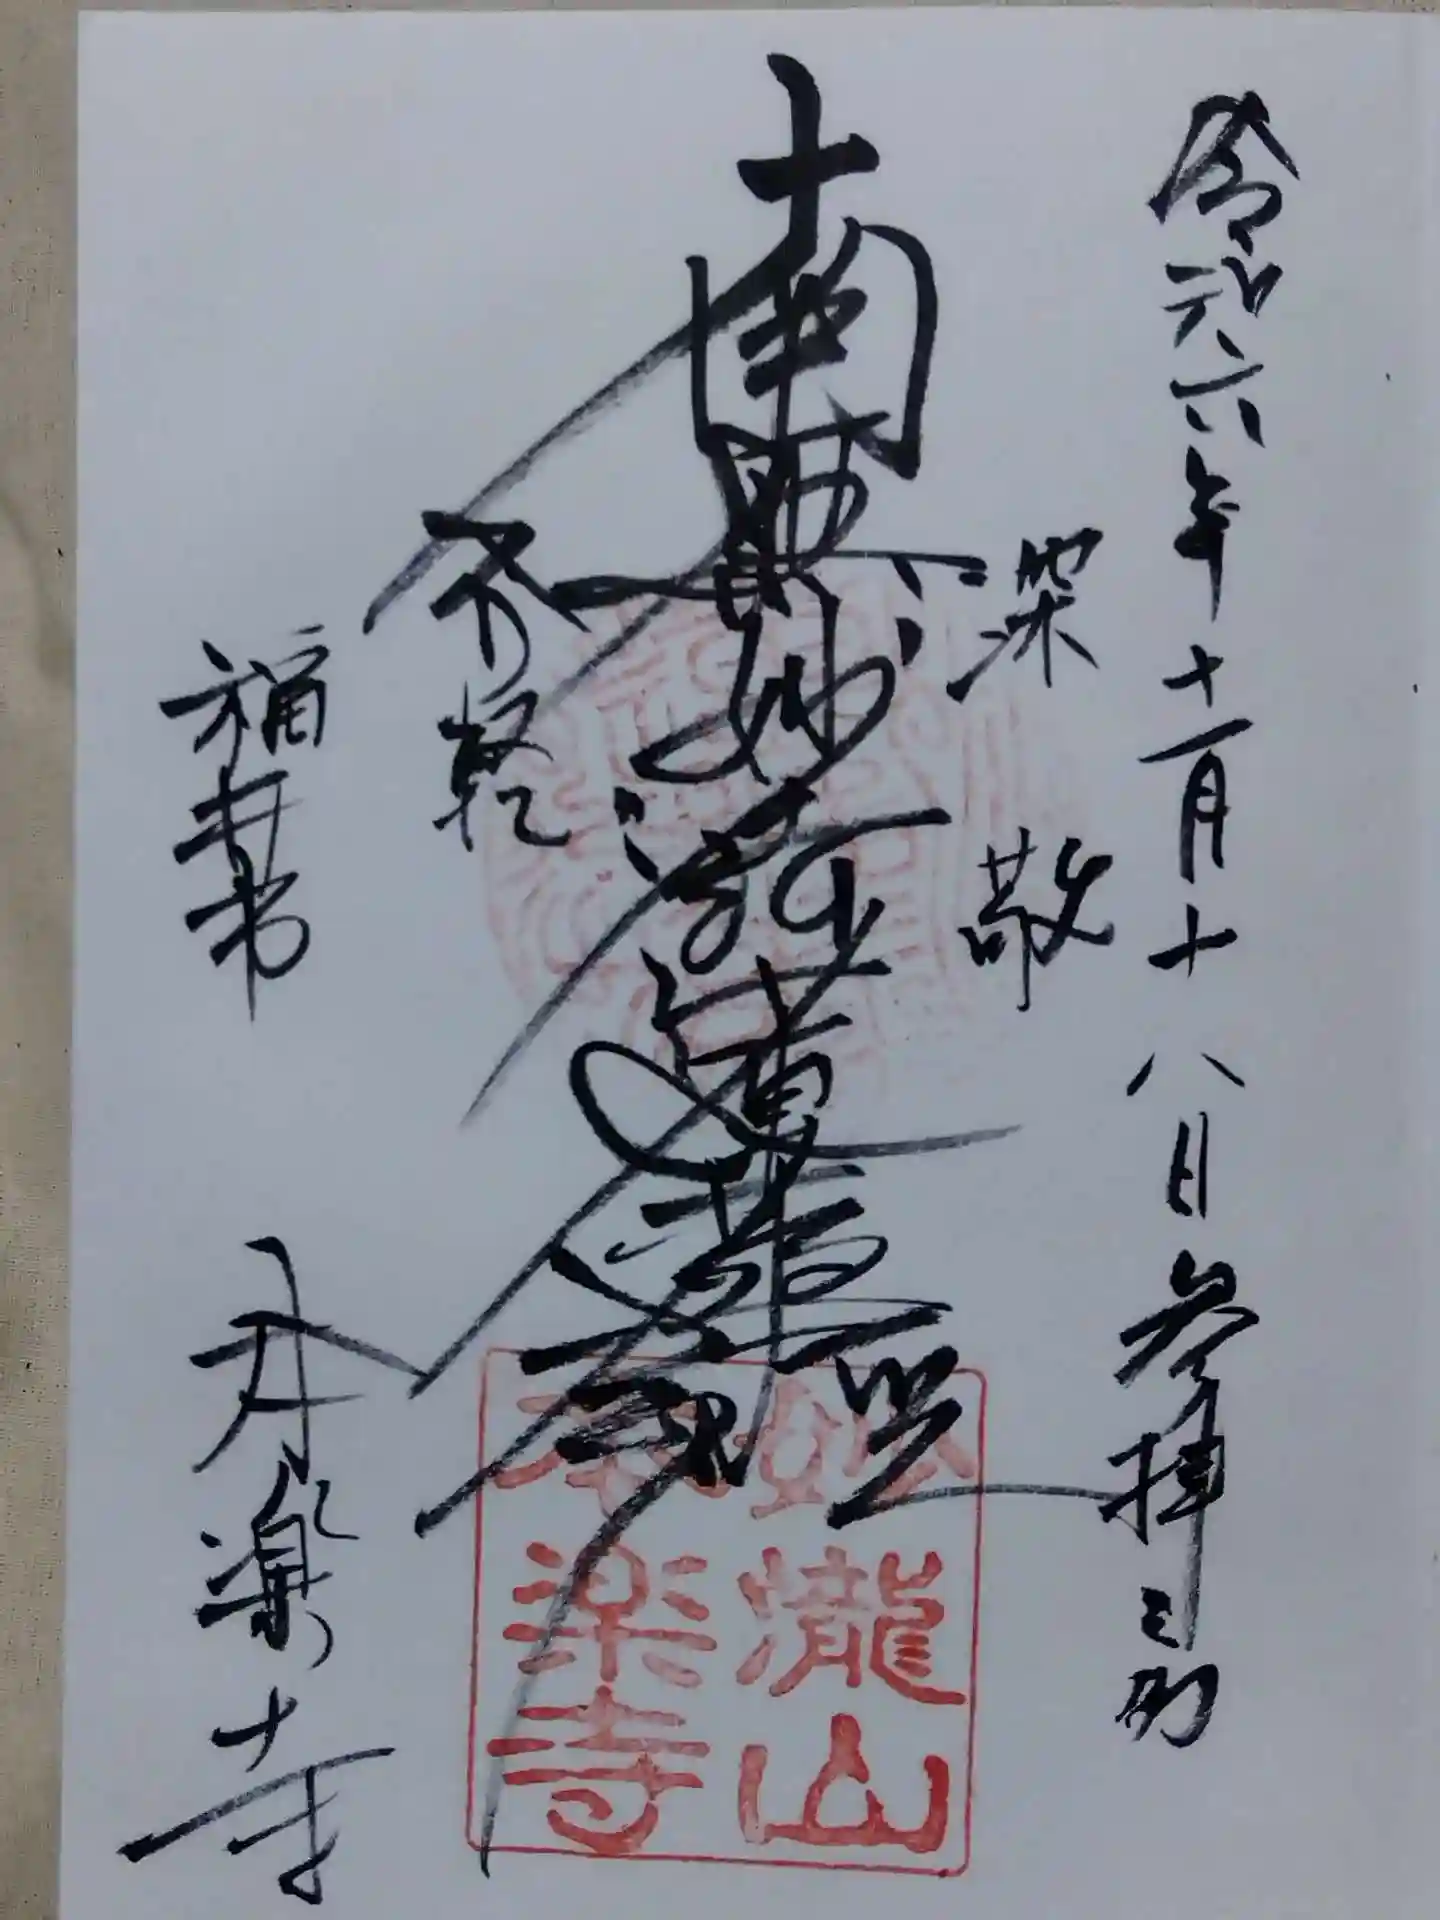 令和六年十一月十八日参拝之砌
深敬
南無妙法蓮華経
不軽
本楽寺
瀧山
本楽寺